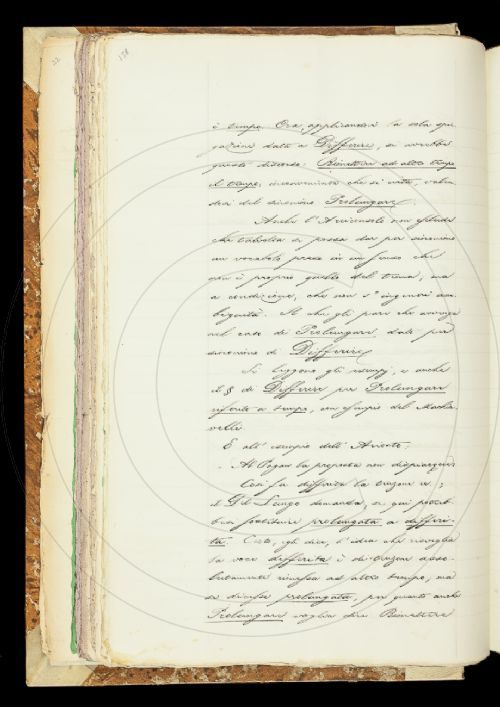 è tempo. Ora, applicandosi la sola spie
gazione data a Differire, si avrebbe
questo discorso: Rimettere ad altro tempo
il tempo; inconveniente che si evita, valen
dosi del sinonimo Prolungare.
Anche l'Arciconsolo non esclude
che talvolta si possa dar per sinonimo
un vocabolo preso in un senso che
non è proprio quello del tema, ma
a condizione, che non s'ingeneri am
biguità. Il che gli pare che avvenga
nel caso di Prolungare dato per
sinonimo di Differire
Si leggono gli esempj, e anche
il § di Differire per Prolungare
riferito a tempo, con esempio del Machia
velli.
E all'esempio dell'Ariosto.
Al Pagan la proposta non dispiacque:
Così fu differita la tenzone ec.;
il D. Del Lungo domanda, se qui potreb
be sostituire prolungata a differi-
ta. Certo, egli dice, l'idea che risveglia
la voce differita è di tenzone asso-
lutamente rimessa ad altro tempo, ma
se dicesse prolungata, per quanto anche
Prolungare voglia dire Rimettere